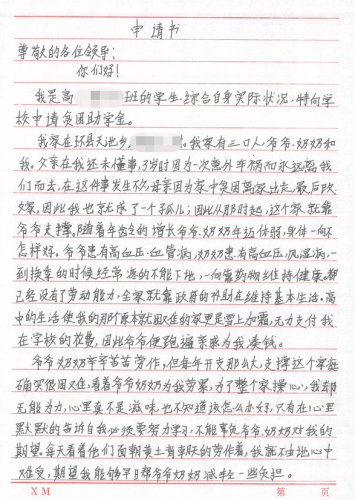 申请书
尊敬的各位领导:
你们好!
我是高 班的学生.综合自身实际状况,特向学
校申请贫困助学金。
我家在环县天池乡, 。我家有三口人,爷爷.奶奶和
我。父亲在我还未懂事,3岁时因为一次意外车祸而永远离我
们而去,在这件事发生不久,母亲因为家中贫困离家出走,最后改
嫁,因此我也就成了一个孤儿;因此从那时起,这个家就靠
爷爷支撑。随着年龄的增长爷爷.奶奶年近体弱,身体一向不
怎样好。爷爷患有高血压.血管病,奶奶患有高血压,风湿病,一
到换季的时候经常 的不能下地,一向靠药物维持健康。都
已经没有了劳动能力,全家就靠政府的补助在维持基本生活。高
中的生活使我的那个原本就困难的家更是雪上加霜,无力支付我
在学校的花费,因此爷爷便跑遍亲戚为我凑钱。
爷爷奶奶辛辛苦苦劳作,但每年开支那么大,支撑这个家庭
确实很困难,看着爷爷奶奶为我劳累,为了整个家操心,我却
无能为力,心里真不是滋味,也不知道该怎么办好,只有在心里
默默的告诉自我必须要努力学习,不能辜负爷爷.奶奶对我的
期望。每天看着他们面朝黄土背朝天的劳作着,我就不由地心中
难受,期望我能够早日帮爷爷奶奶减轻一些负担。
XM 第 页